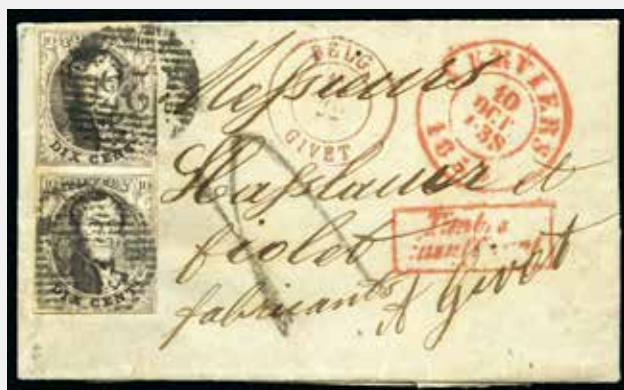 DIX CENT
DIX CENT
BELG
GIVET
VERVIERS
10
OCT
18
Timbre
insuffisant
Messieurs
Hasslauer et
fiolet
fabricants
A Givet